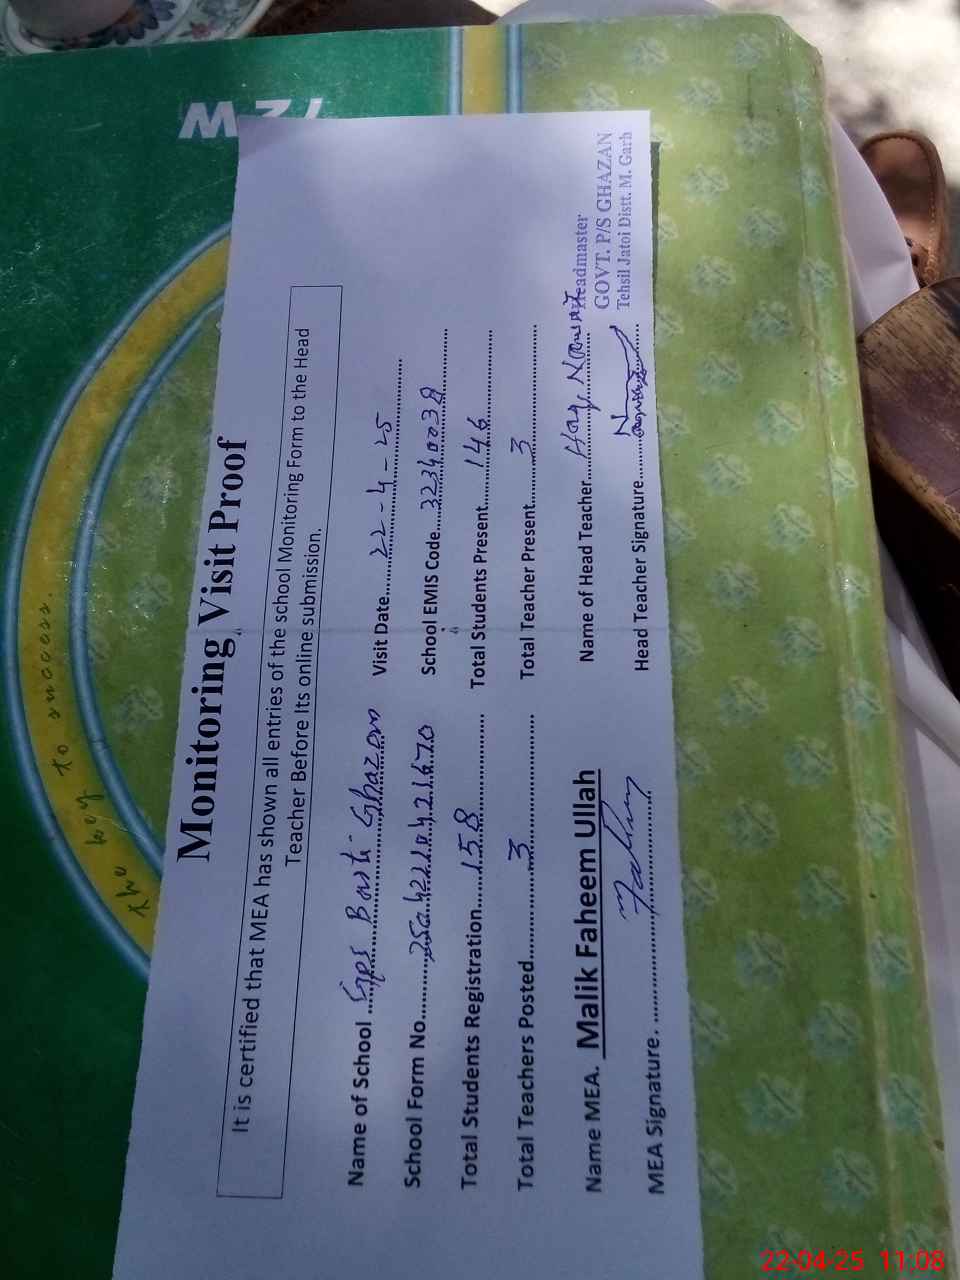 Monitoring Visit Proof
It is certified that MEA has shown all entries of the school Monitoring Form to the Head
Teacher Before Its online submission.
Name of School Gps Basti Ghazan Visit Date 22-4-25
School Form No. School EMIS Code 32340038
Total Students Registration 158 Total Students Present 146
Total Teachers Posted 3 Total Teacher Present 3
Name MEA. Malik Faheem Ullah Name of Head Teacher Haq Nawaz
MEA Signature. Head Teacher Signature
Headmaster
GOVT. P/S GHAZAN
Tehsil Jatoi Distt. M. Garh
the key to success.
22-04-25 11:08